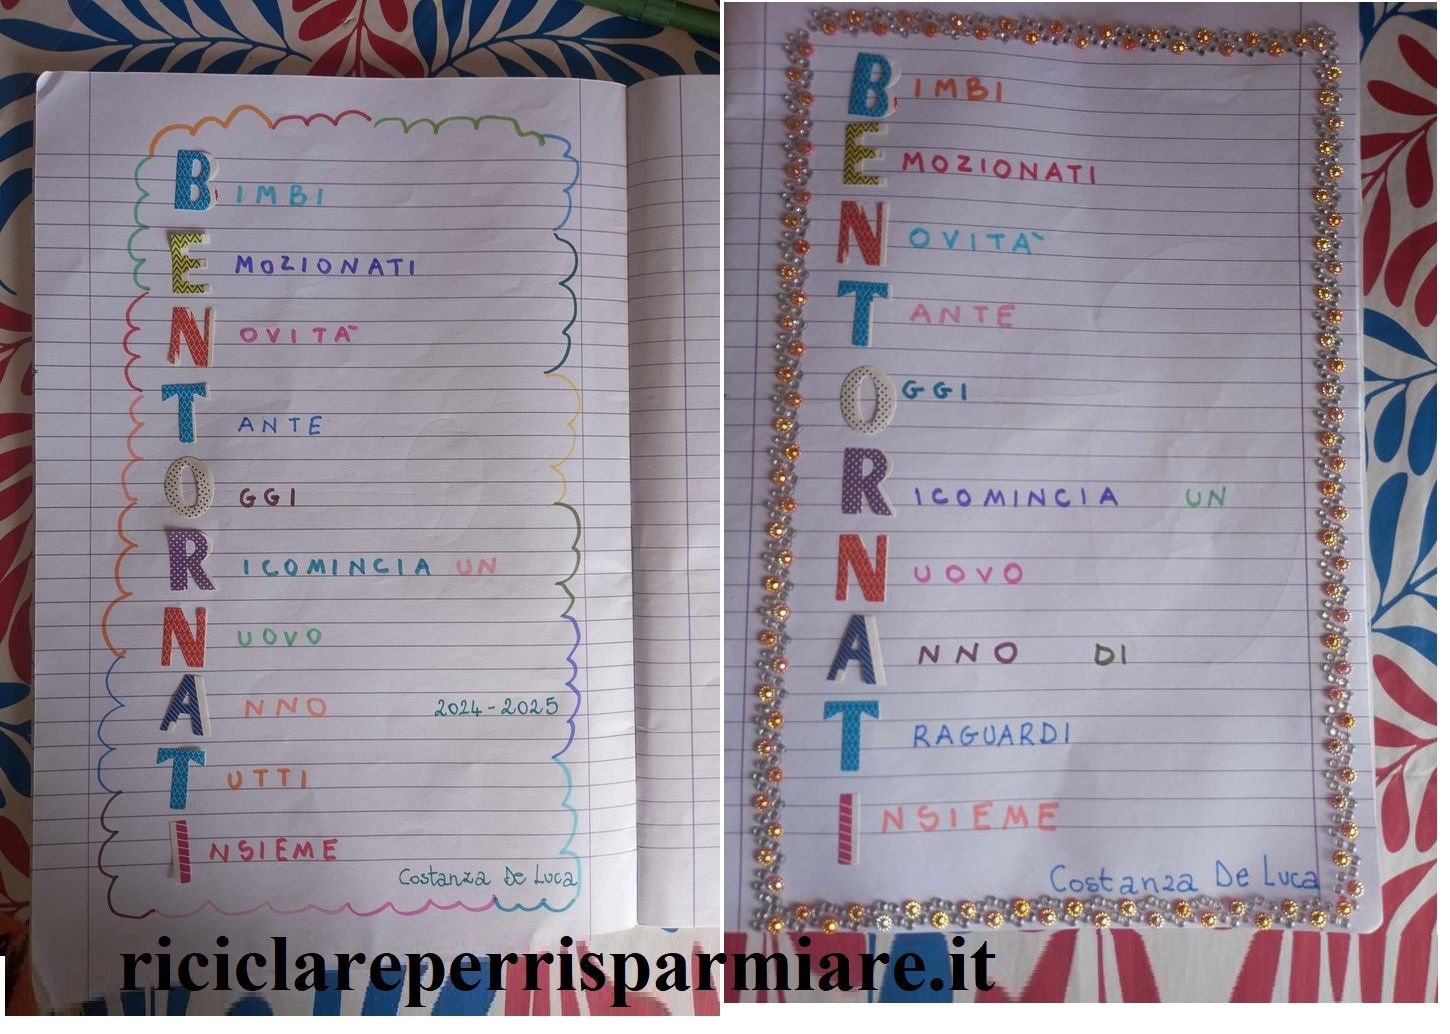 BIMBI
EMOZIONATI
NOVITÀ
TANTE
OGGI
RICOMINCIA UN
NUOVO
ANNO 2024-2025
TUTTI
INSIEME
Costanza De Luca
BIMBI
EMOZIONATI
NOVITÀ
TANTE
OGGI
RICOMINCIA UN
NUOVO
ANNO DI
TRAGUARDI
INSIEME
Costanza De Luca
riciclareperrisparmiare.it